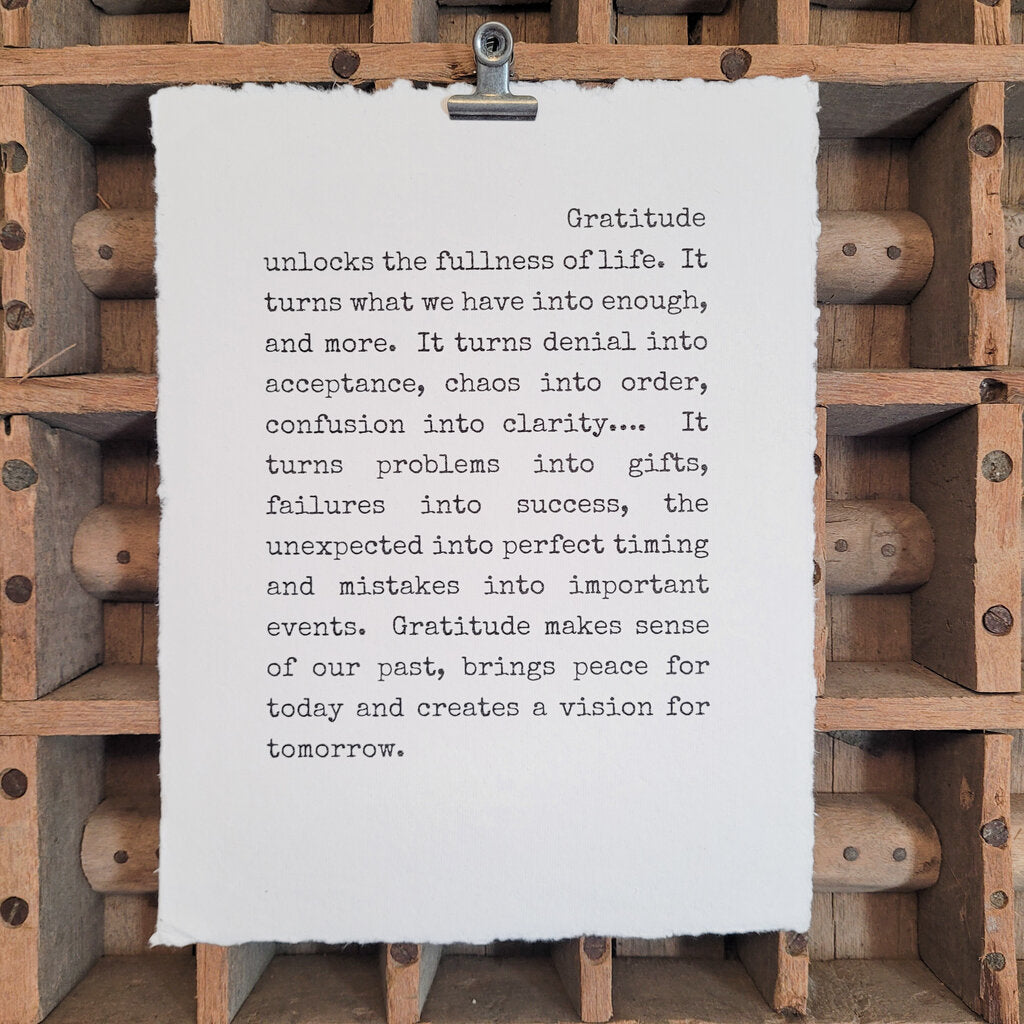 Gratitude
unlocks the fullness of life. It
turns what we have into enough,
and more. It turns denial into
acceptance, chaos into order,
confusion into clarity.... It
turns problems into gifts,
failures into success, the
unexpected into perfect timing
and mistakes into important
events. Gratitude makes sense
of our past, brings peace for
today and creates a vision for
tomorrow.